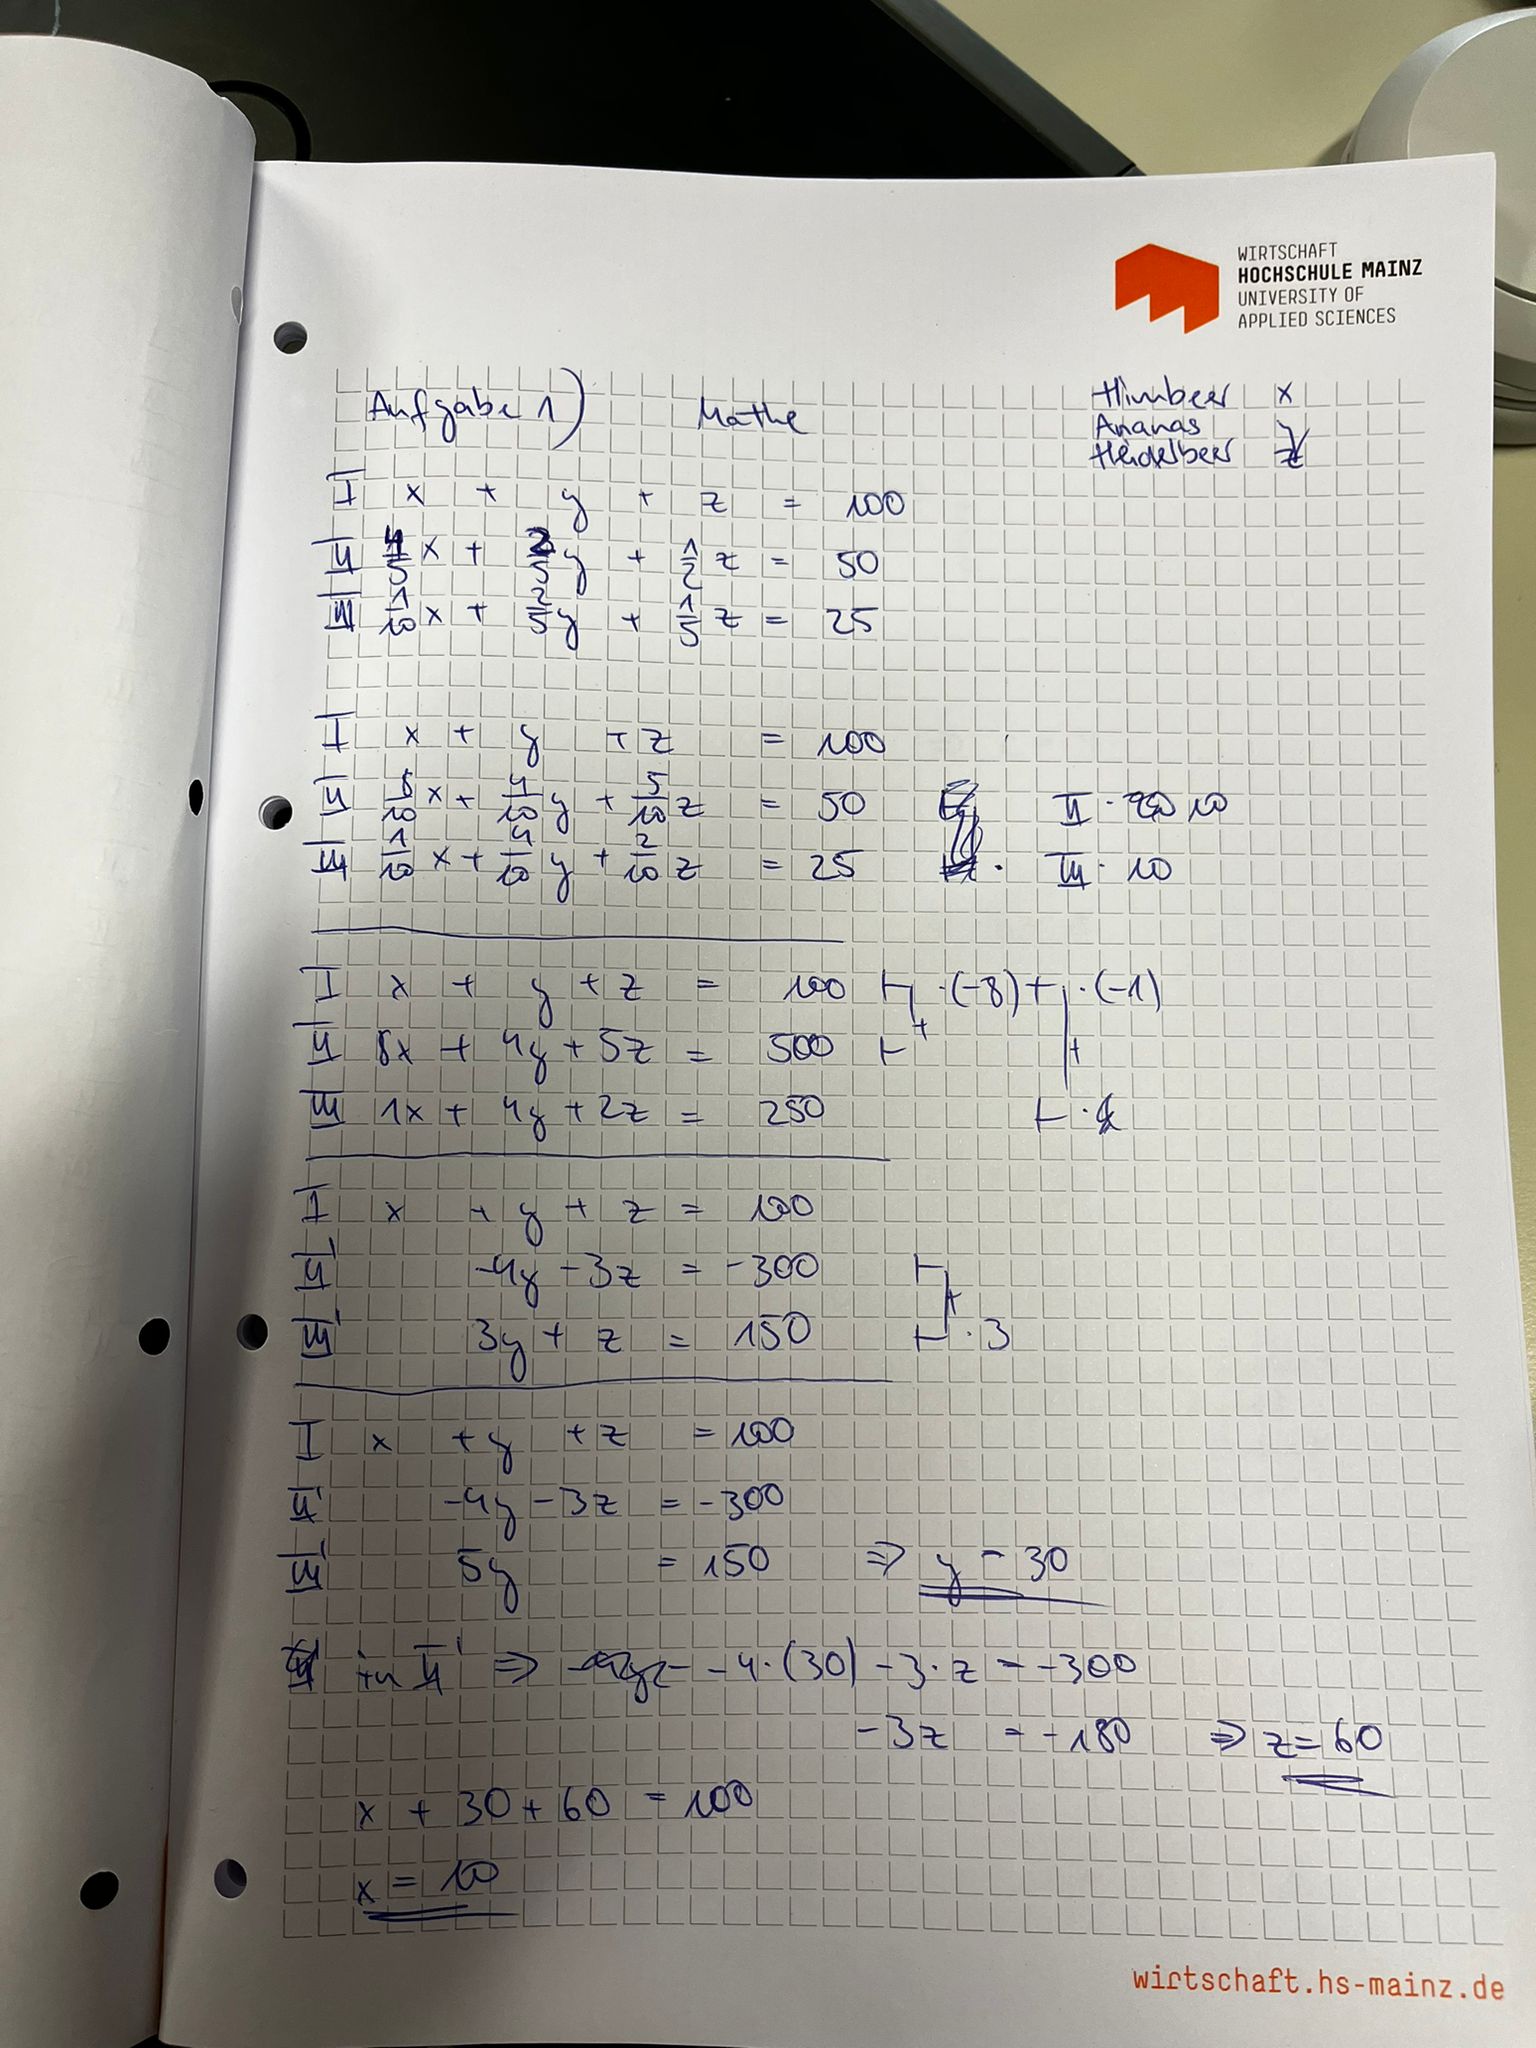 WIRTSCHAFT
HOCHSCHULE MAINZ
UNIVERSITY OF
APPLIED SCIENCES
Aufgabe 1) Mathe
Himbeer x
Ananas y
Heidelbeer z
I x + y + z = 100
II 4/5 x + 2/5 y + 1/2 z = 50
III 1/10 x + 2/5 y + 1/5 z = 25
I x + y + z = 100
II 8/10 x + 4/10 y + 5/10 z = 50 II · 10
III 1/10 x + 4/10 y + 2/10 z = 25 III · 10
I x + y + z = 100 · (-8) + · (-1)
II 8x + 4y + 5z = 500 +
III 1x + 4y + 2z = 250
I x + y + z = 100
II' -4y - 3z = -300
III' 3y + z = 150 · 3
I x + y + z = 100
II' -4y - 3z = -300
III' 5y = 150 ⇒ y = 30
in II' ⇒ -4·(30) - 3·z = -300
-3z = -180 ⇒ z = 60
x + 30 + 60 = 100
x = 10
wirtschaft.hs-mainz.de